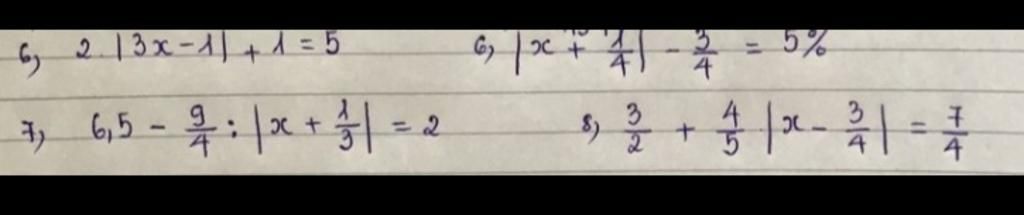 6, 2. |3x - 1| + 1 = 5 6, |x + 1/4| - 3/4 = 5%
7, 6,5 - 9/4 : |x + 1/3| = 2 8, 3/2 + 4/5 |x - 3/4| = 7/4